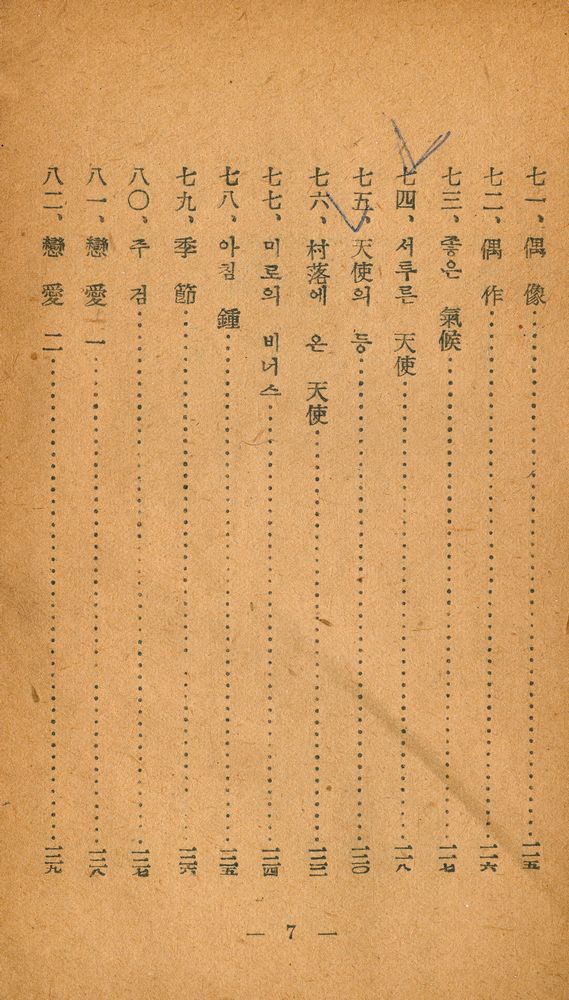 七一、偶像⋯⋯一一五
七二、偶作⋯⋯一一六
七三、좋은 氣候⋯⋯一一七
七四、서투른 天使⋯⋯一一八
七五、天使의 등⋯⋯一二〇
七六、村落에 온 天使⋯⋯一二二
七七、미로의 비너스⋯⋯一二四
七八、아침 鍾⋯⋯一二五
七九、季節⋯⋯一二六
八〇、주검⋯⋯一二七
八一、戀愛 一⋯⋯一二八
八二、戀愛 二⋯⋯一二九
— 7 —